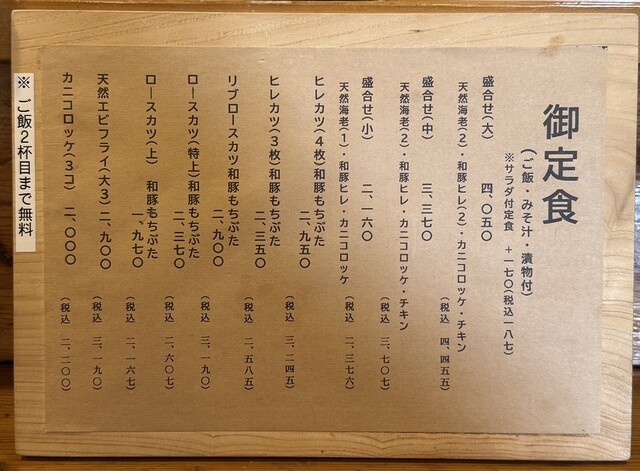 御定食
(ご飯・みそ汁・漬物付)
※サラダ付定食 +一七〇(税込一八七)
盛合せ(大) 四、〇五〇
天然海老(2)・和豚ヒレ(2)・カニコロッケ・チキン
(税込 四、四五五)
盛合せ(中) 三、三七〇
天然海老(2)・和豚ヒレ・カニコロッケ・チキン
(税込 三、七〇七)
盛合せ(小) 二、一六〇
天然海老(1)・和豚ヒレ・カニコロッケ
(税込 二、三七六)
ヒレカツ(4枚)和豚もちぶた
二、九五〇
(税込 三、二四五)
ヒレカツ(3枚)和豚もちぶた
二、三五〇
(税込 二、五八五)
リブロースカツ和豚もちぶた
二、九〇〇
(税込 三、一九〇)
ロースカツ(特上)和豚もちぶた
二、三七〇
(税込 二、六〇七)
ロースカツ(上) 和豚もちぶた
一、九七〇
(税込 二、一六七)
天然エビフライ(大3) 二、九〇〇
(税込 三、一九〇)
カニコロッケ(3コ) 二、〇〇〇
(税込 二、二〇〇)
※ ご飯2杯目まで無料